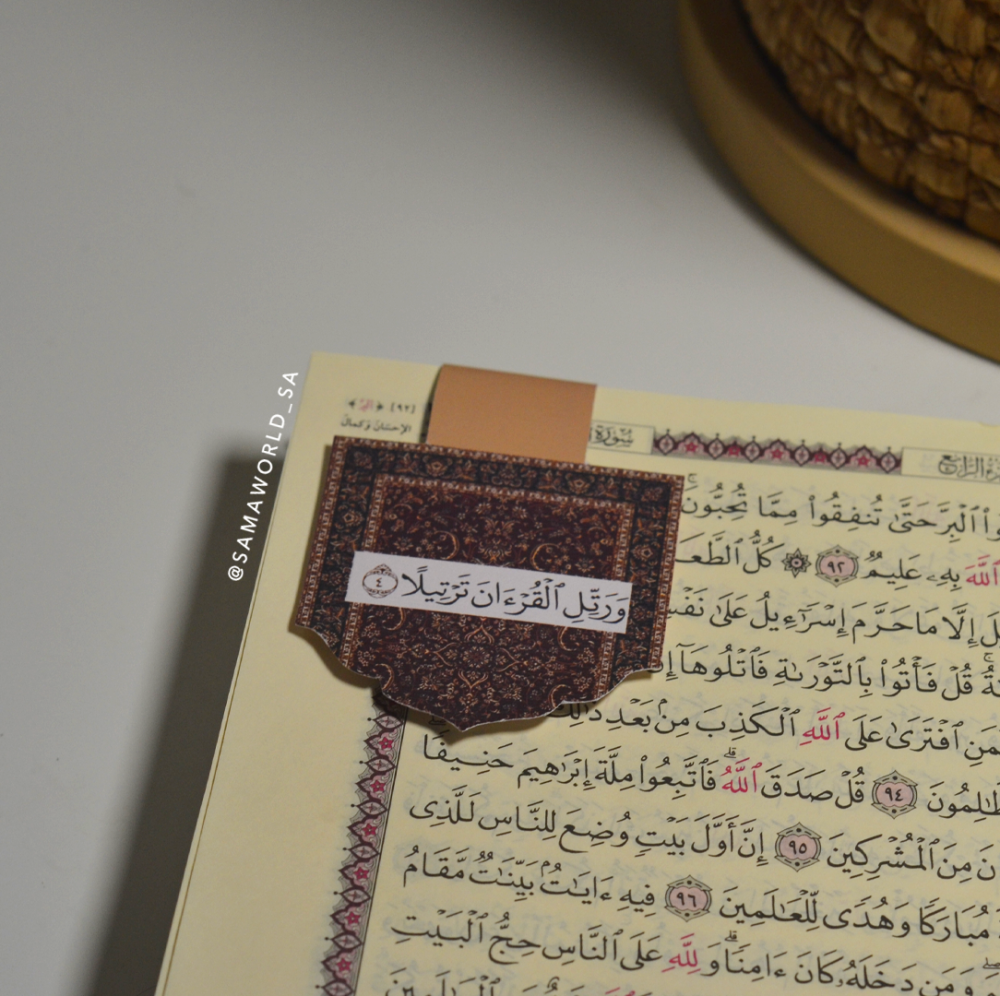 @SAMAWORLD_SA
[٩٢]
الإحسان وكمال
سُورَةُ
وَرَتِّلِ ٱلْقُرْءَانَ تَرْتِيلًا ٤
ٱلْبِرَّ حَتَّىٰ تُنفِقُوا۟ مِمَّا تُحِبُّونَ ۚ
ٱللَّهَ بِهِۦ عَلِيمٌ ٩٢ ۞ كُلُّ ٱلطَّعَ
إِلَّا مَا حَرَّمَ إِسْرَٰٓءِيلُ عَلَىٰ نَفْسِ
قُلْ فَأْتُوا۟ بِٱلتَّوْرَىٰةِ فَٱتْلُوهَآ إِ
مَنِ ٱفْتَرَىٰ عَلَى ٱللَّهِ ٱلْكَذِبَ مِنۢ بَعْدِ ذَٰلِكَ
ظَّٰلِمُونَ ٩٤ قُلْ صَدَقَ ٱللَّهُ ۗ فَٱتَّبِعُوا۟ مِلَّةَ إِبْرَٰهِيمَ حَنِيفًا
نَ مِنَ ٱلْمُشْرِكِينَ ٩٥ إِنَّ أَوَّلَ بَيْتٍ وُضِعَ لِلنَّاسِ لَلَّذِى
مُبَارَكًا وَهُدًى لِّلْعَٰلَمِينَ ٩٦ فِيهِ ءَايَٰتٌۢ بَيِّنَٰتٌ مَّقَامُ
وَمَن دَخَلَهُۥ كَانَ ءَامِنًا ۗ وَلِلَّهِ عَلَى ٱلنَّاسِ حِجُّ ٱلْبَيْتِ